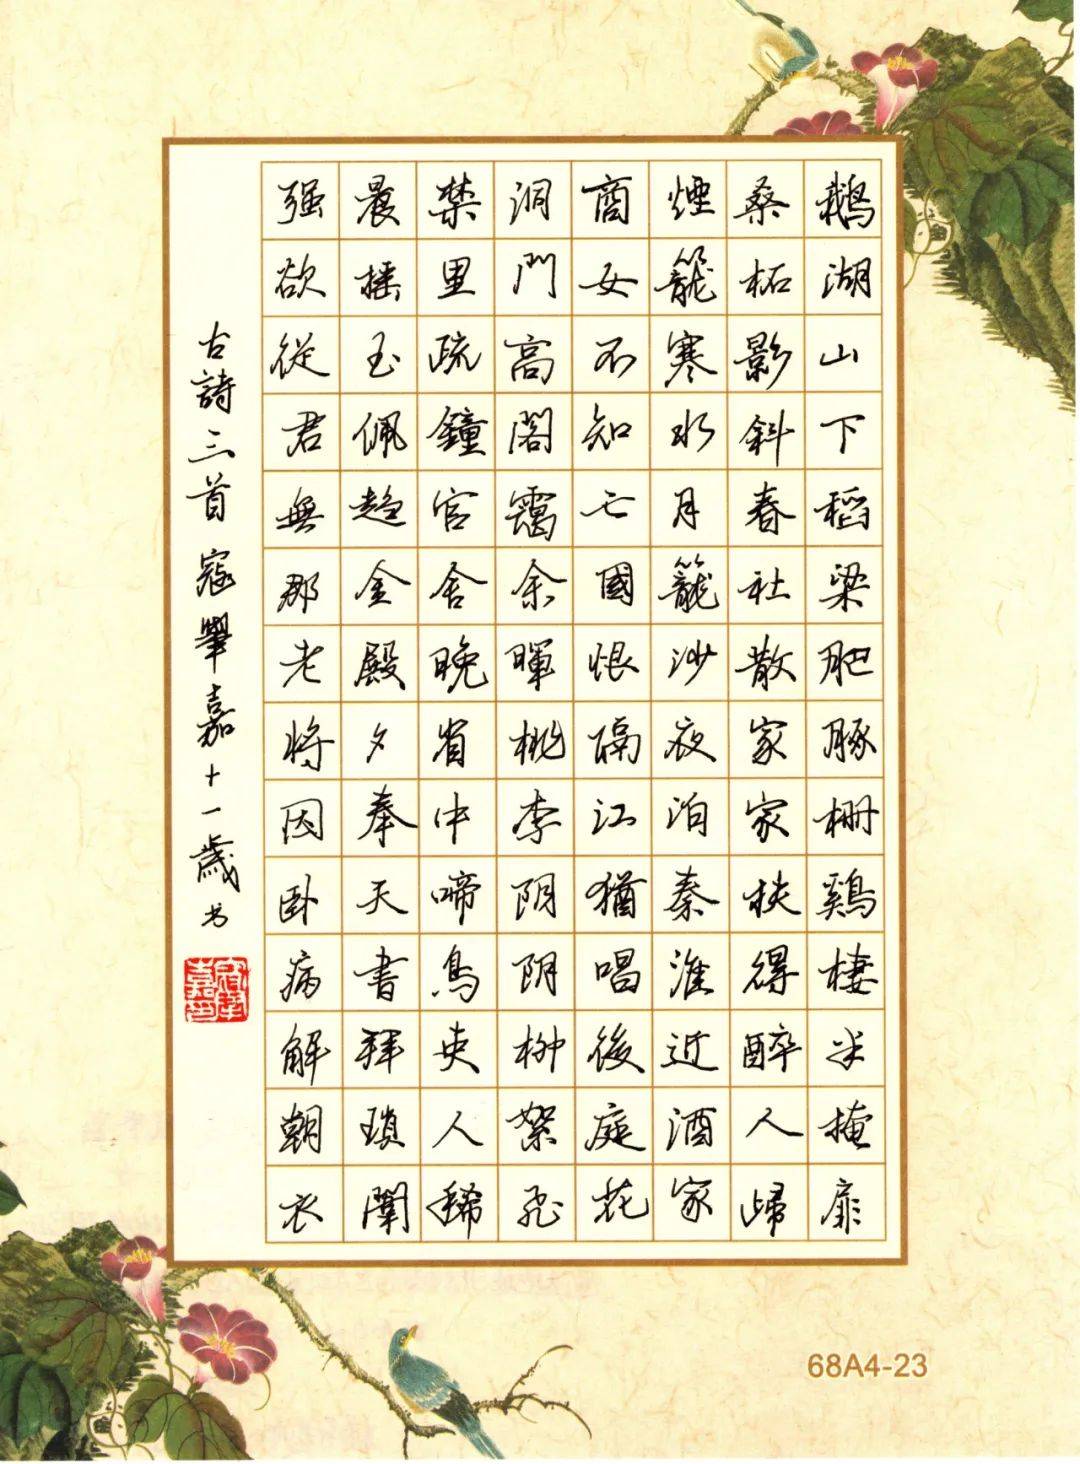 鵝湖山下稻梁肥豚栅鷄棲半掩扉
桑柘影斜春社散家家扶得醉人歸
煙籠寒水月籠沙夜泊秦淮近酒家
商女不知亡國恨隔江猶唱後庭花
洞門高閣靄余暉桃李阴阴柳絮飛
禁里疏鐘官舍晚省中啼鳥吏人稀
晨摇玉佩趋金殿夕奉天書拜瑣闈
强欲從君無那老將因卧病解朝衣
古詩三首 寇舉嘉十一歲书
寇舉嘉印
68A4-23